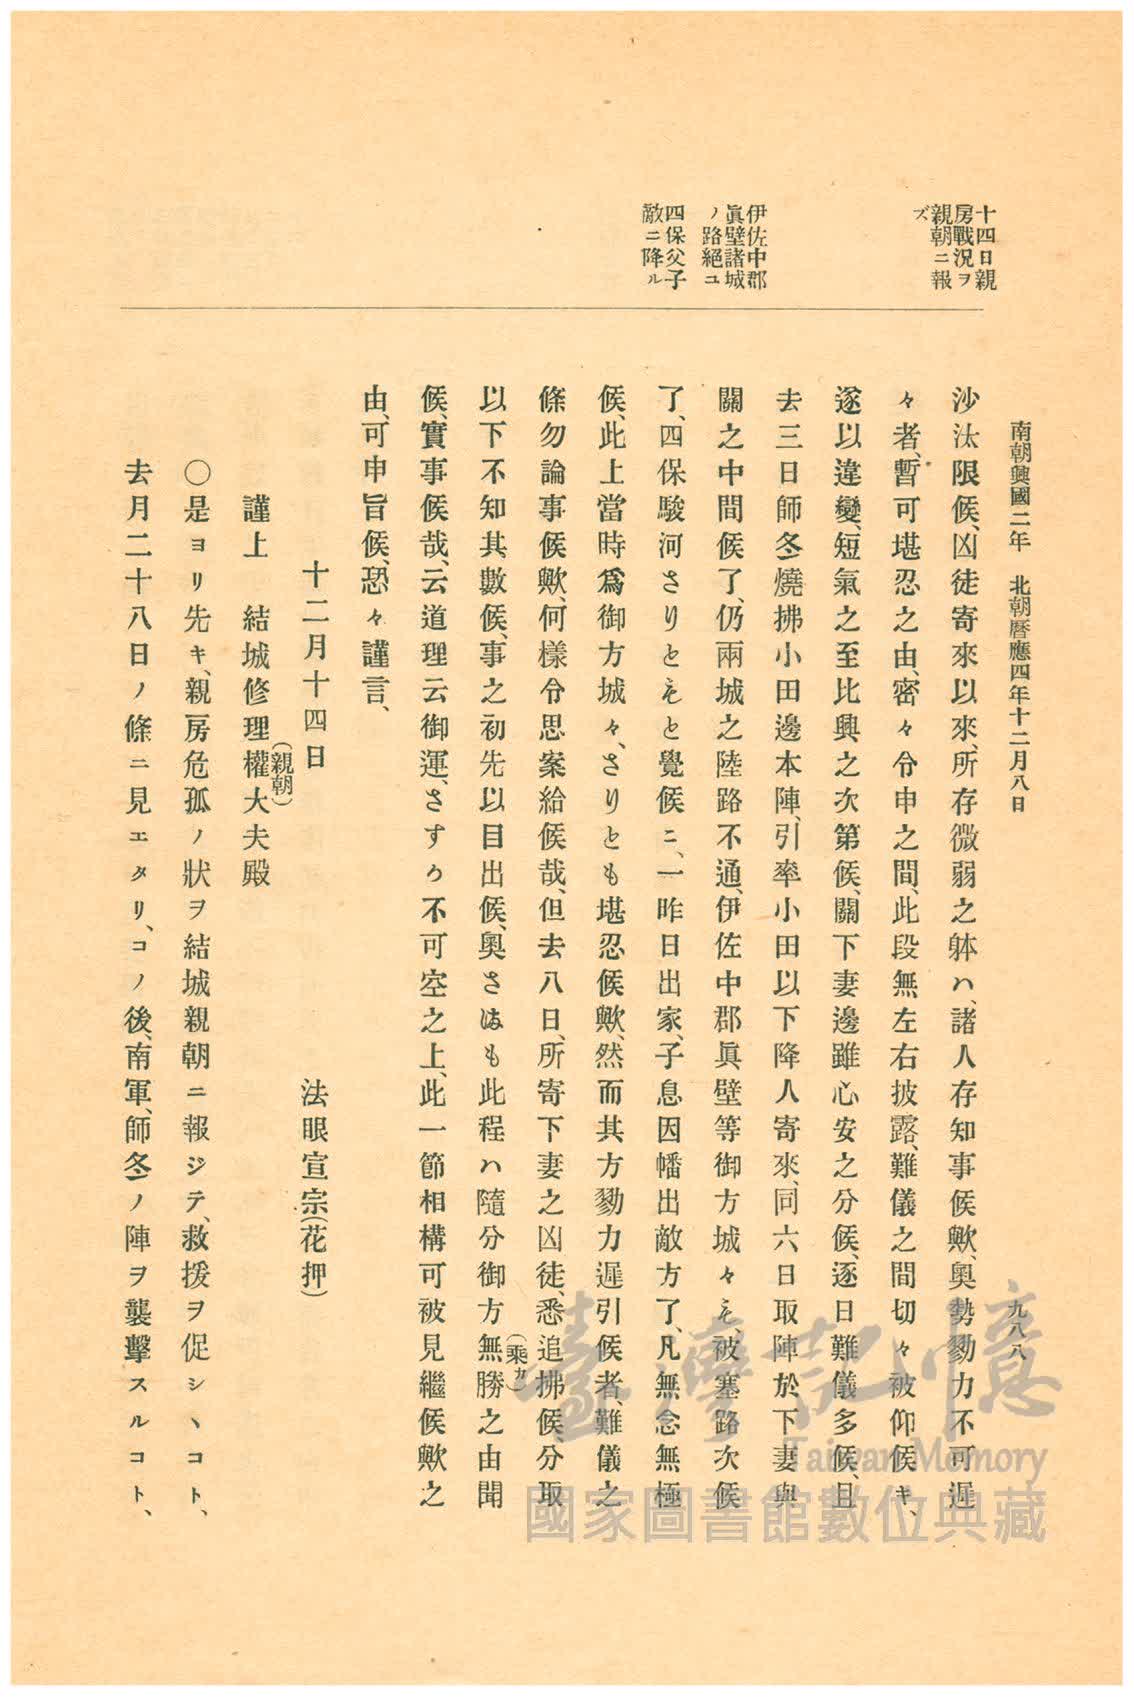 南朝興國二年　北朝曆應四年十二月八日
九八八
十四日親
房戰況ヲ
親朝ニ報
ズ
伊佐中郡
眞壁諸城
ノ路絕ユ
四保父子
敵ニ降ル
沙汰限候、凶徒寄來以來、所存微弱之躰ハ、諸人存知事候歟、奧勢勠力不可遲
々者、暫可堪忍之由、密々令申之間、此段無左右披露、難儀之間切々被仰候キ、
遂以違變、短氣之至比興之次第候、關下妻邊雖心安之分候、逐日難儀多候、且
去三日師冬燒拂小田邊本陣、引率小田以下降人寄來、同六日取陣於下妻與
關之中間候了、仍兩城之陸路不通、伊佐中郡眞壁等御方城々も、被塞路次候
了、四保駿河さりともと覺候ニ、一昨日出家、子息因幡出敵方了、凡無念無極
候、此上當時爲御方城々、さりとも堪忍候歟、然而其方勠力遲引候者、難儀之
條勿論事候歟、何樣令思案給候哉、但去八日、所寄下妻之凶徒、悉追拂候、分取
以下不知其數候、事之初先以目出候、奧さまも此程ハ隨分御方無勝之由聞
（乘カ）
候、實事候哉、云道理云御運、さすか不可空之上、此一節相構可被見繼候歟之
由、可申旨候、恐々謹言、
十二月十四日　法眼宣宗（花押）
謹上　結城修理權大夫殿
（親朝）
〇是ヨリ先キ、親房危孤ノ狀ヲ結城親朝ニ報ジテ、救援ヲ促シヽコト、
去月二十八日ノ條ニ見エタリ、コノ後、南軍、師冬ノ陣ヲ襲擊スルコト、
臺灣記憶
Taiwan Memory
國家圖書館數位典藏